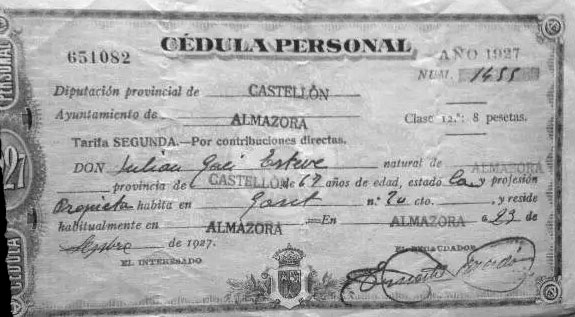 CÉDULA PERSONAL
651082
AÑO 1927
NUM. 1455
Diputación provincial de CASTELLÓN
Ayuntamiento de ALMAZORA
Clase 12.ª: 8 pesetas.
Tarifa SEGUNDA.—Por contribuciones directas.
DON Julián Galí Esteve natural de ALMAZORA
provincia de CASTELLÓN de 67 años de edad, estado profesión
habita en n.º cto. y reside
habitualmente en ALMAZORA =En ALMAZORA a 23 de
Sepbre de 1927.
EL INTERESADO
EL RECAUDADOR
PERSONAL
27
CÉDULA